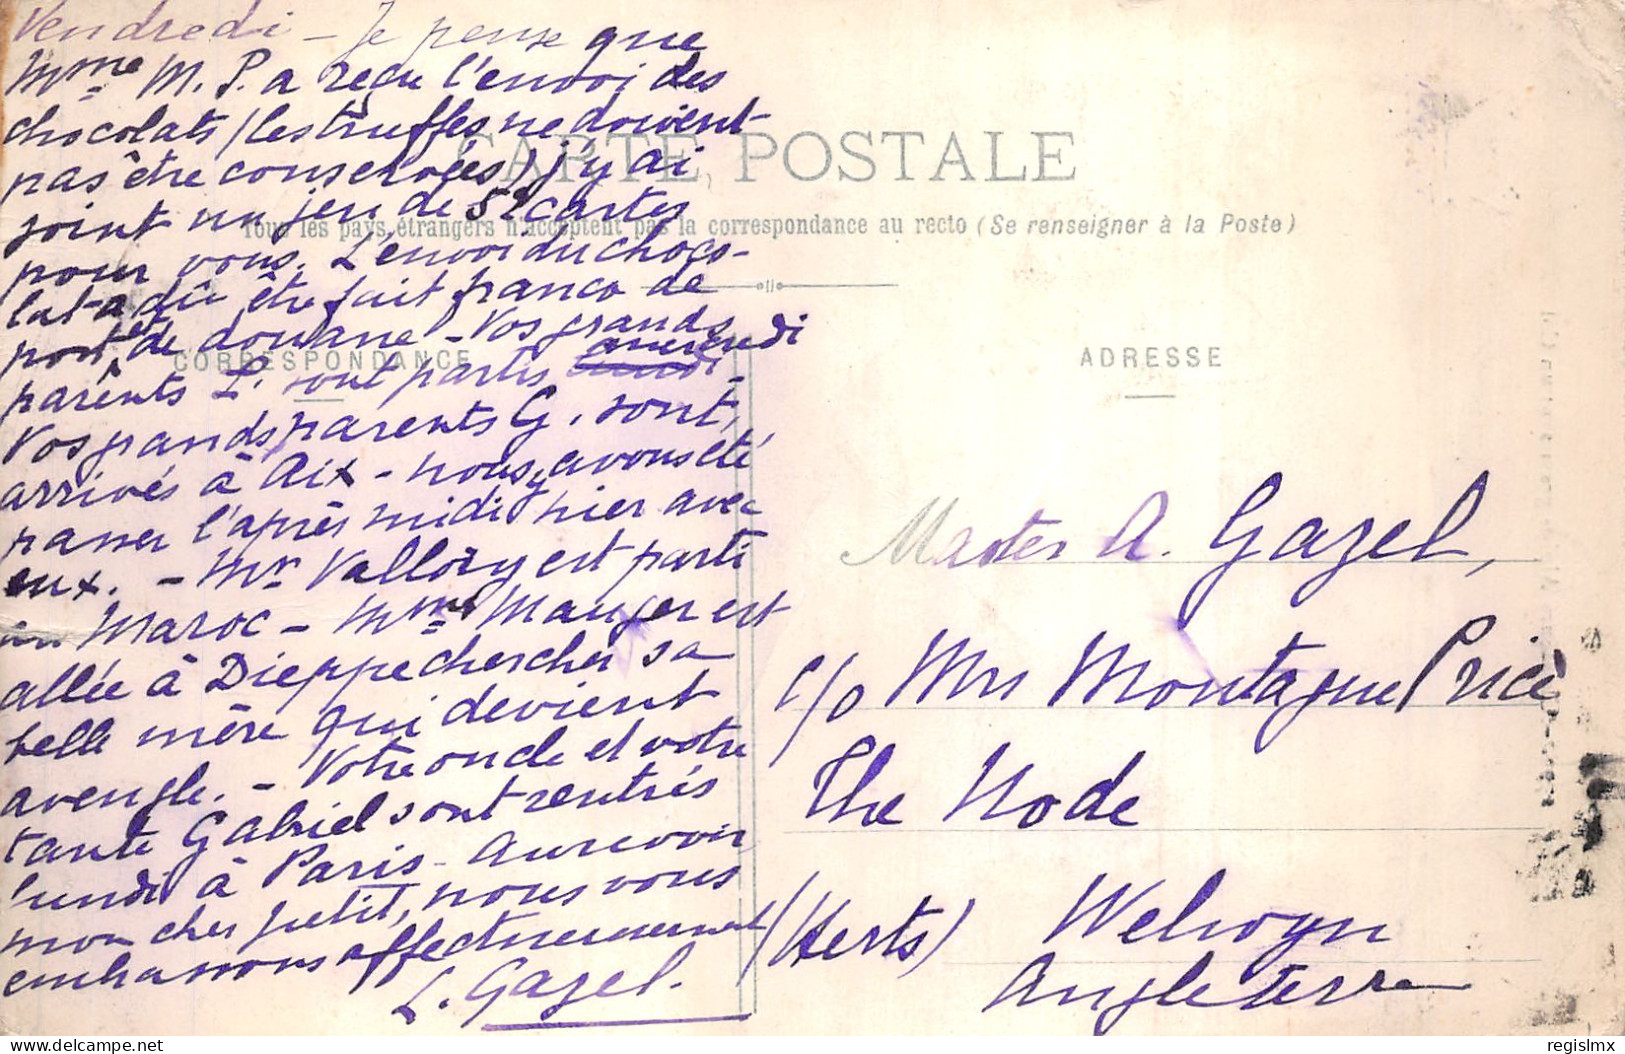 Vendredi – Je pense que
Mme M. P. a reçu l'envoi des
chocolats (les truffes ne doivent
pas être conservées) j'y ai
joint un jeu de 52 cartes
pour vous. L'envoi du choco-
lat a dû être fait franco de
port et de douane – Vos grands
parents L. sont partis mercredi
Vos grands parents G. sont
arrivés à Aix – nous avons été
passer l'après midi hier avec
eux. – Mr Vallory est parti
au Maroc – Mme Mauger est
allée à Dieppe chercher sa
belle mère qui devient
aveugle. – Votre oncle et votre
tante Gabriel sont rentrés
lundi à Paris – Au revoir
mon cher petit, nous vous
embrassons affectueusement
L. Gazel.
CARTE POSTALE
Tous les pays étrangers n'acceptent pas la correspondance au recto (Se renseigner à la Poste)
CORRESPONDANCE
ADRESSE
Master A. Gazel,
c/o Mrs Montague Price
The Node
Welwyn
(Herts)
Angleterre
delcampe.net
regislmx